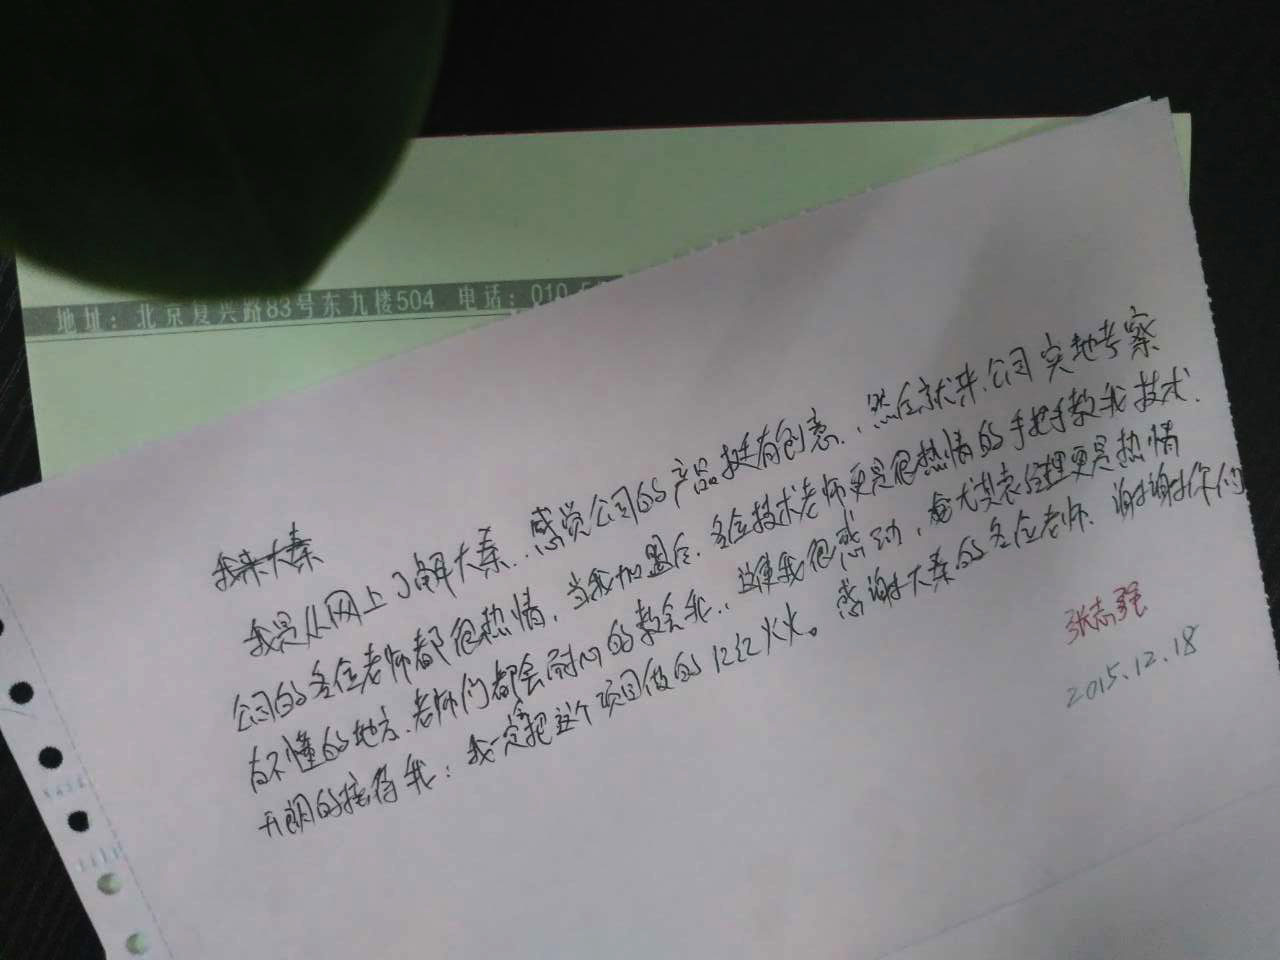 地址：北京复兴路83号东九楼504 电话：010
我来大秦
我是从网上了解大秦.感觉公司的产品挺有创意.，然后就来公司实地考察
公司的各位老师都很热情，当我加盟后.各位技术老师更是很热情的手把手教我技术.
有不懂的地方.老师们都会耐心的教会我.，这使我很感动，尤其袁经理更是热情
开朗的接待我：我一定把这个项目做的红红火火。感谢大秦的各位老师.谢谢你们
张志强
2015.12.18